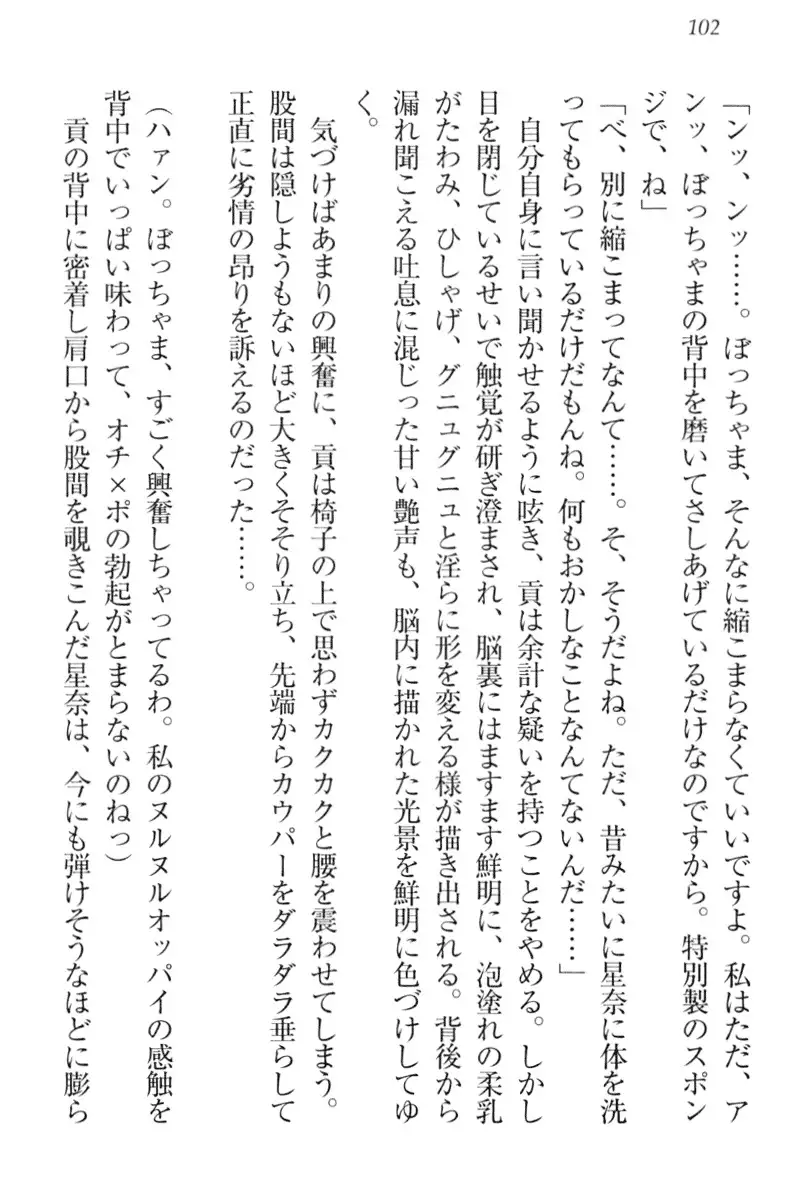 102
「ンッ、ンッ……。ぼっちゃま、そんなに縮こまらなくていいですよ。私はただ、ア
ンッ、ぼっちゃまの背中を磨いてさしあげているだけなのですから。特別製のスポン
ジで、ね」
「べ、別に縮こまってなんて……。そ、そうだよね。ただ、昔みたいに星奈に体を洗
ってもらっているだけだもんね。何もおかしなことなんてないんだ……」
　自分自身に言い聞かせるように呟き、貢は余計な疑いを持つことをやめる。しかし
目を閉じているせいで触覚が研ぎ澄まされ、脳裏にはますます鮮明に、泡塗れの柔乳
がたわみ、ひしゃげ、グニュグニュと淫らに形を変える様が描き出される。背後から
漏れ聞こえる吐息に混じった甘い艶声も、脳内に描かれた光景を鮮明に色づけしてゆ
く。
　気づけばあまりの興奮に、貢は椅子の上で思わずカクカクと腰を震わせてしまう。
股間は隠しようもないほど大きくそそり立ち、先端からカウパーをダラダラ垂らして
正直に劣情の昂りを訴えるのだった……。
（ハァン。ぼっちゃま、すごく興奮しちゃってるわ。私のヌルヌルオッパイの感触を
背中でいっぱい味わって、オチ×ポの勃起がとまらないのねっ）
　貢の背中に密着し肩口から股間を覗きこんだ星奈は、今にも弾けそうなほどに膨ら